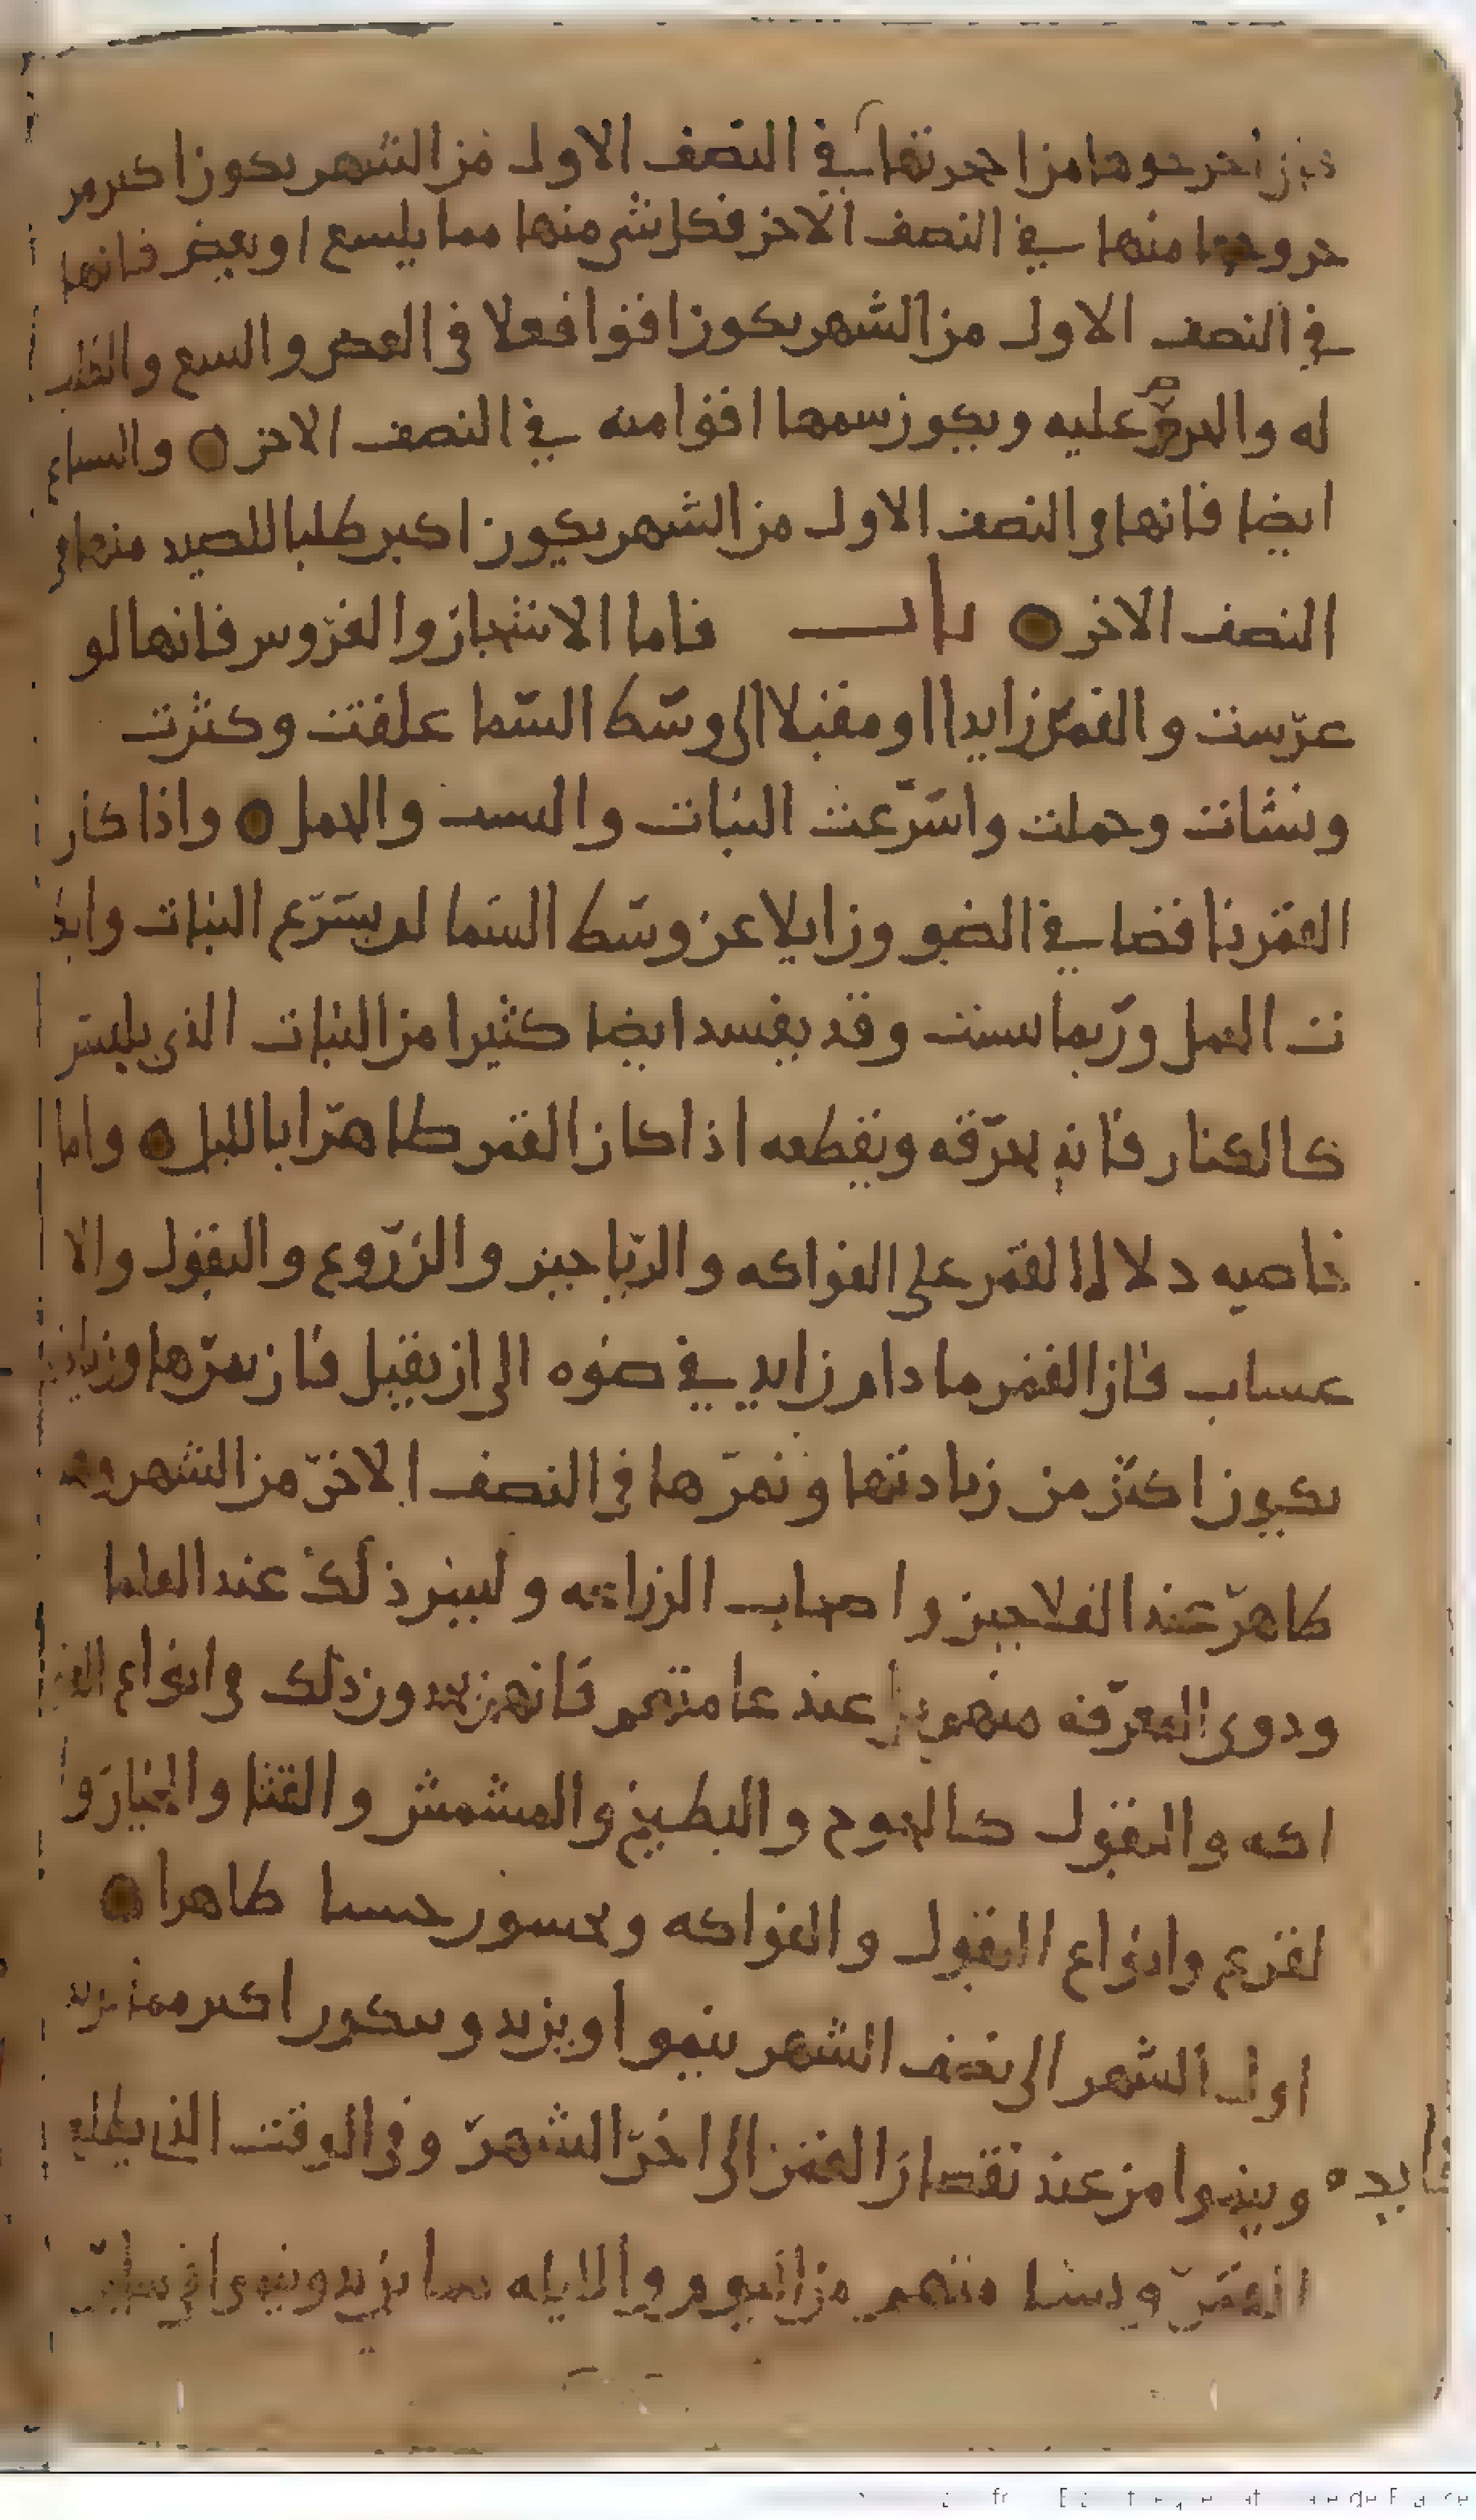 خروجها من اجحرتها في النصف الاول من الشهر يكون اكثر من
خروجها منها في النصف الاخر فكل شي منها مما يلسع او يعض فانها
في النصف الاول من الشهر يكون اقوا فعلا في العض والسع والطلب
له والحرص عليه ويكون سمها اقوا منه في النصف الاخر والسباع
ايضا فانها في النصف الاول من الشهر يكون اكثر طلبا للصيد منها في
النصف الاخر باب فاما الاشجار والغروس فانها لو
غرست والقمر زايدا او مقبلا الى وسط السما علقت وكثرت
ونشات وحملت واسرعت النبات والحمل واذا كان
القمر ناقصا في الضو وزايلا عن وسط السما لم يسرع النبات وابطا
ت الحمل وربما يبست وقد يفسد ايضا كثيرا من النبات الذي يلبس
كالكتان فانه يحرقه ويقطعه اذا كان القمر ظاهرا بالليل واما
خاصيه دلالا القمر على الفواكه والرياحين والزروع والبقول والا
عساب فان القمر ما دام زايد في ضوه الى ان يقبل فان ثمرها وزيادتها
يكون اكثر من زيادتها وثمرها في النصف الاخر من الشهر وهو
ظاهر عند الفلاحين واصحاب الزراعه وليس ذلك عند العلما
ودوى المعرفه منهم بل عند عامتهم فانهم يجدون ذلك في انواع الفو
اكه والبقول كالخوخ والبطيخ والمشمش والقثا والخيار وا
لقرع وانواع البقول والفواكه ويحسون حسا ظاهرا
اول الشهر الى نصف الشهر ينموا ويزيد ويكون اكثر مما يزيد
وينموا من عند نقصان القمر الى اخر الشهر وفي الوقت الذي يطلع
القمر من اليوم والليله يزيد وينموا
فايده